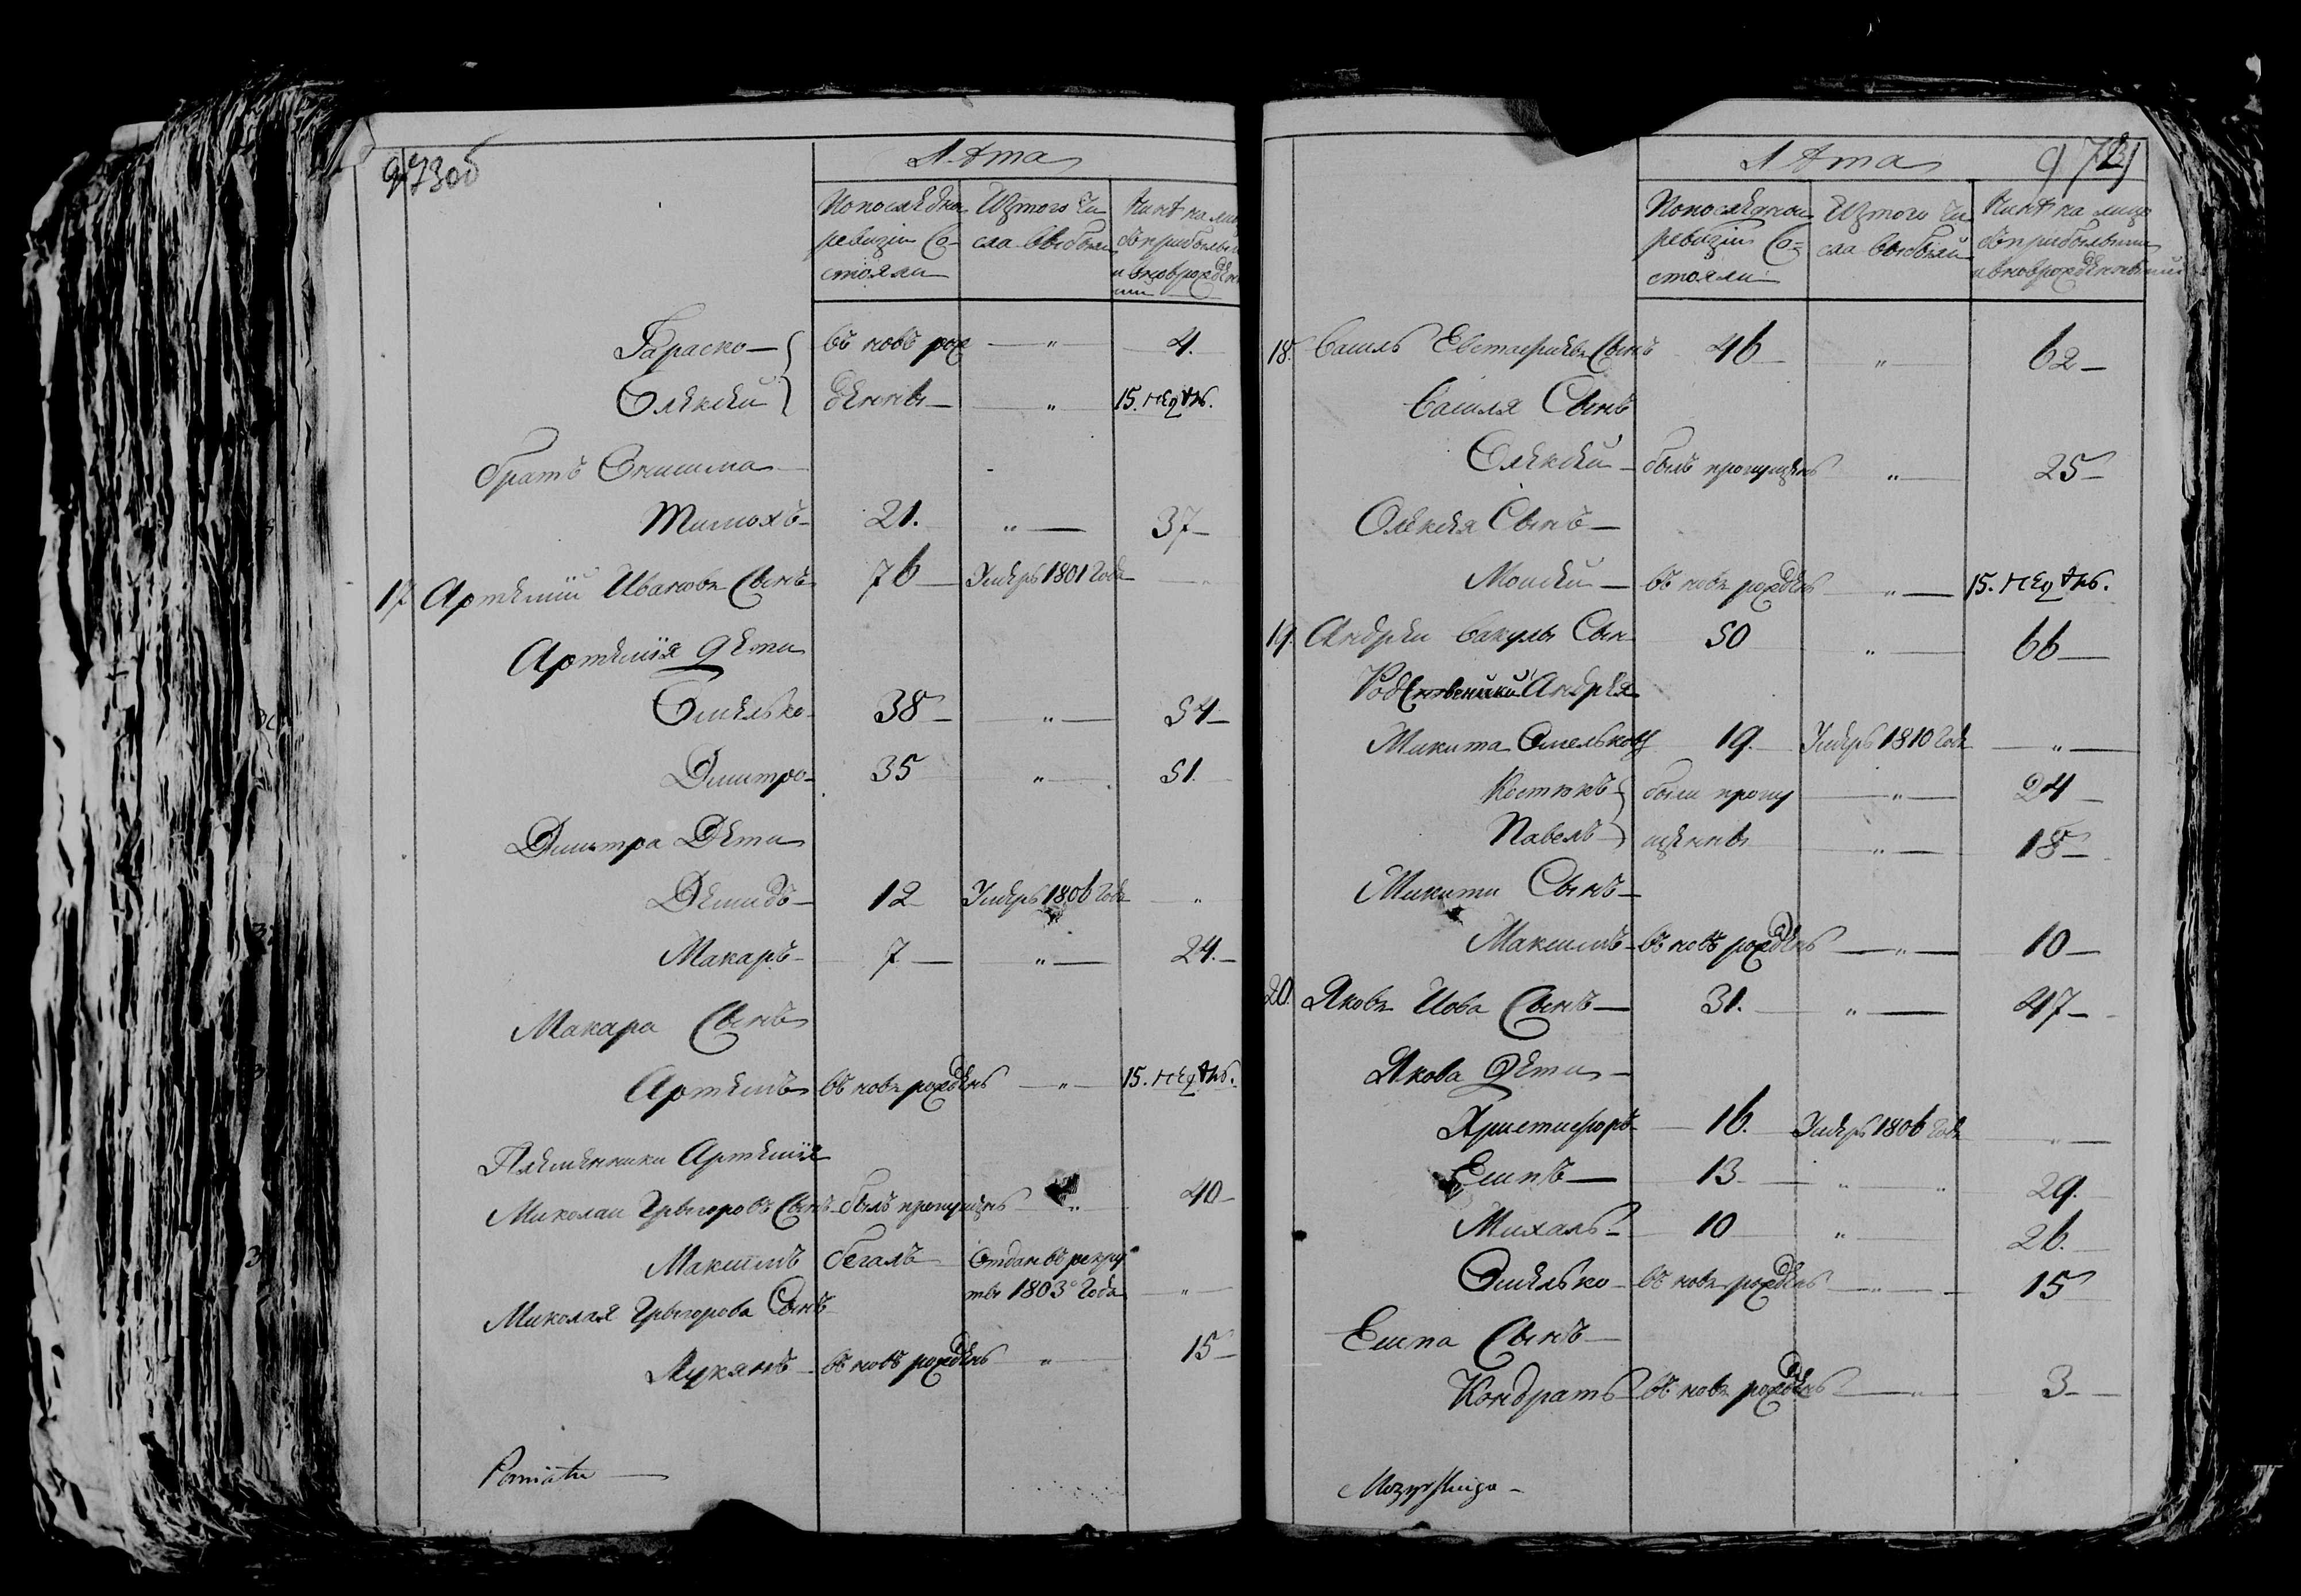 973об
Лѣта
Попослѣдней Изтого чи Нинѣ на ли
ревизіи Со- сла выбыли съприбылы
стояли и вновьрожден
ними
Гараско — въ новѣ рож — „ — 4.
Олексей денны — — „ 15. недѣль.
братъ Онисима
Тимохъ — 21. „ — 37 —
17 Артемій Ивановъ Сынъ 76 — Умеръ 1801 Года — „
Артемія дети
Омелько 38 — — „ — 54 —
Дмитро — 35 „ — 51.
Дмитра Дети
Демидъ — 12 Умеръ 1806 Года — „
Макаръ — 7 — — „ — 24. —
Макара Сынъ
Артемъ въ новѣ рожденъ — „ — 15. недѣль.
Племенники Артемія
Миколай Грыгоровъ Сынъ былъ пропущенъ — „ — 40 —
Максимъ бегалъ Отданъ въ рекру
ты 1803º Года — „
Миколая Грыгорова Сынъ
Лукянъ — въ новѣ рожденъ „ — 15 —
Pomiatu —
973
Лѣта
Попослѣдней Изтого чи Нинѣ на лицо
ревизіи Со- сла выбыли съприбылыми
стояли и вновьрожденными
18. Василь Евстафіевъ Сынъ 46 — „ — 62 —
Василя Сынъ
Олексей — былъ пропущенъ „ — 25 —
Олексея Сынъ —
Мойсей — въ новѣ рожденъ — „ — 15. недѣль.
19. Андрей Вакулы Сын 50 „ — 66 —
Родственики Андрея
Микита Омельковъ 19. Умеръ 1810 Года — „ —
Костюкъ — были пропу — „ — 24 —
Павелъ — щенны — „ — 18 —
Микиты Сынъ —
Максимъ — въ новѣ рожденъ — „ — 10 —
20. Яковъ Иова Сынъ — 31. — „ — 47 —
Якова дети —
Христифоръ — 16. Умеръ 1806 Года — „ —
Есипъ — 13 — „ „ 29. —
Михаль — 10 — „ — 26. —
Омелько — въ новѣ рожденъ — „ — 15
Есипа Сынъ —
Кондратъ — въ новѣ рожденъ — „ — 3 —
Mozyrskiego —